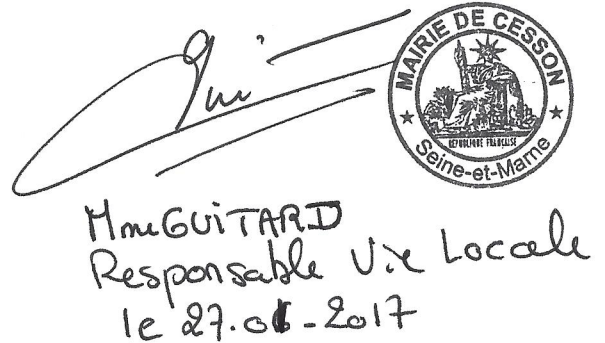 MAIRIE DE CESSON
RÉPUBLIQUE FRANÇAISE
Seine-et-Marne
Mme GUITARD
Responsable Vie Locale
le 27.01-2017